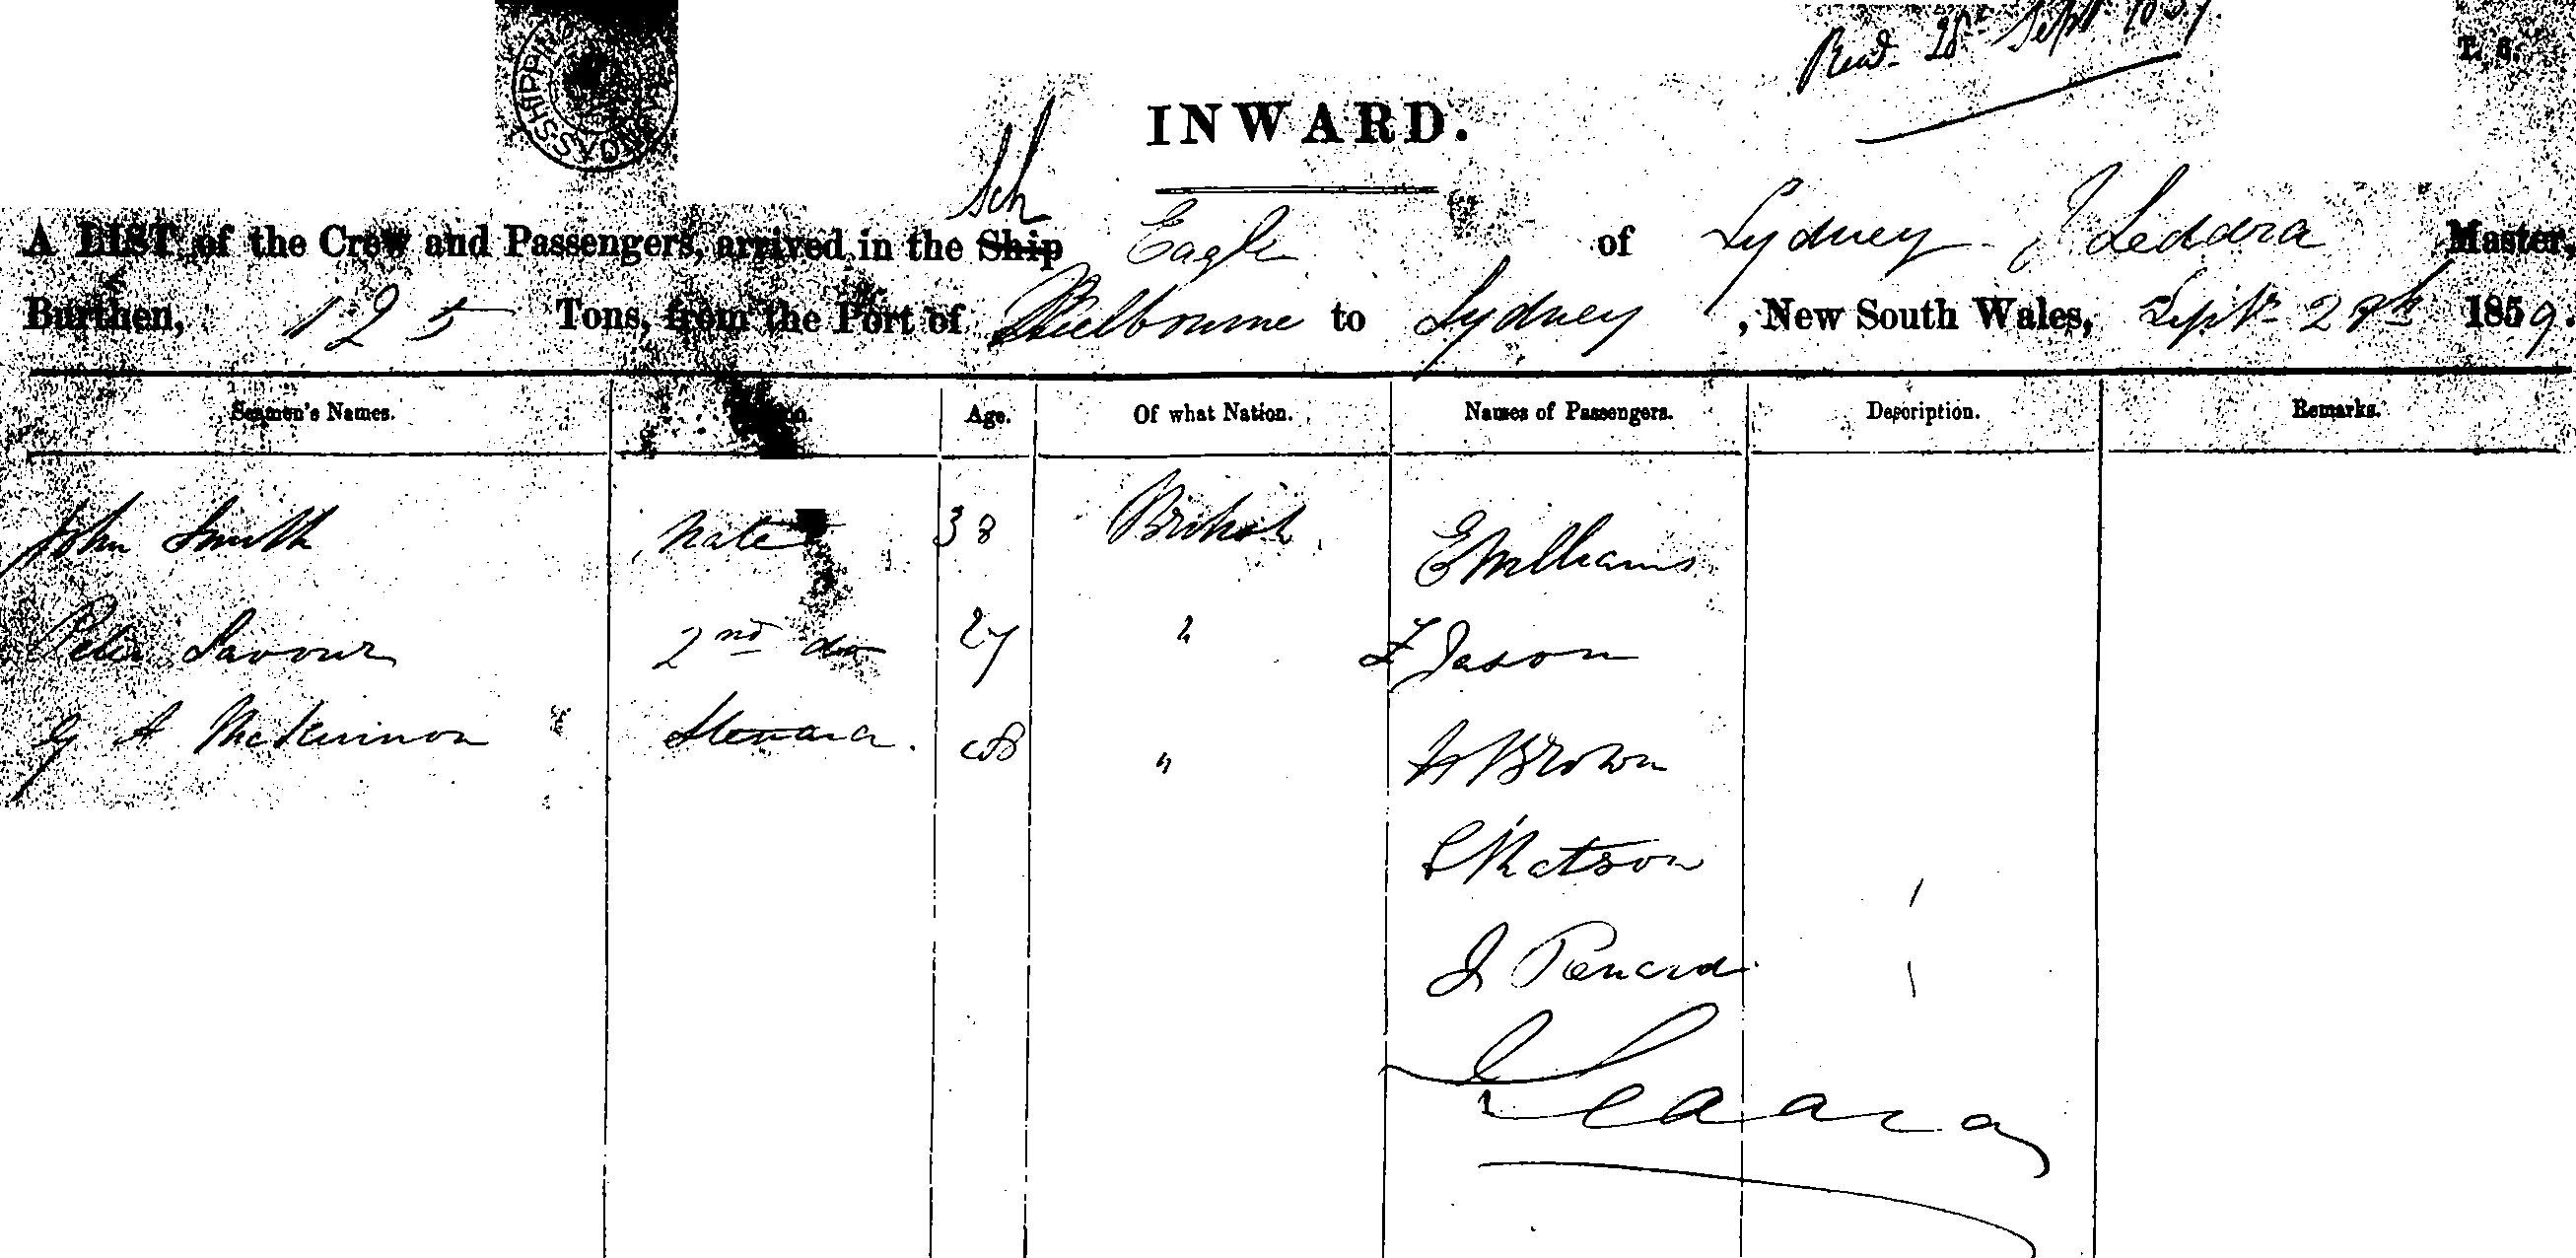 Recd. 28th Sept. 1859
T. S.
INWARD.
Sch
A LIST of the Crew and Passengers, arrived in the Ship Eagle of Sydney J Leddra Master,
Burthen, 125 Tons, from the Port of Melbourne to Sydney, New South Wales, Septr 28th 1859.
Seamen's Names. Age. Of what Nation. Names of Passengers. Description. Remarks.
John Smith Mate 38 British E Williams
Peter Savour 2nd do 27 " Jason
G A McKinnon Steward " Brown
Matson
J
Leddra